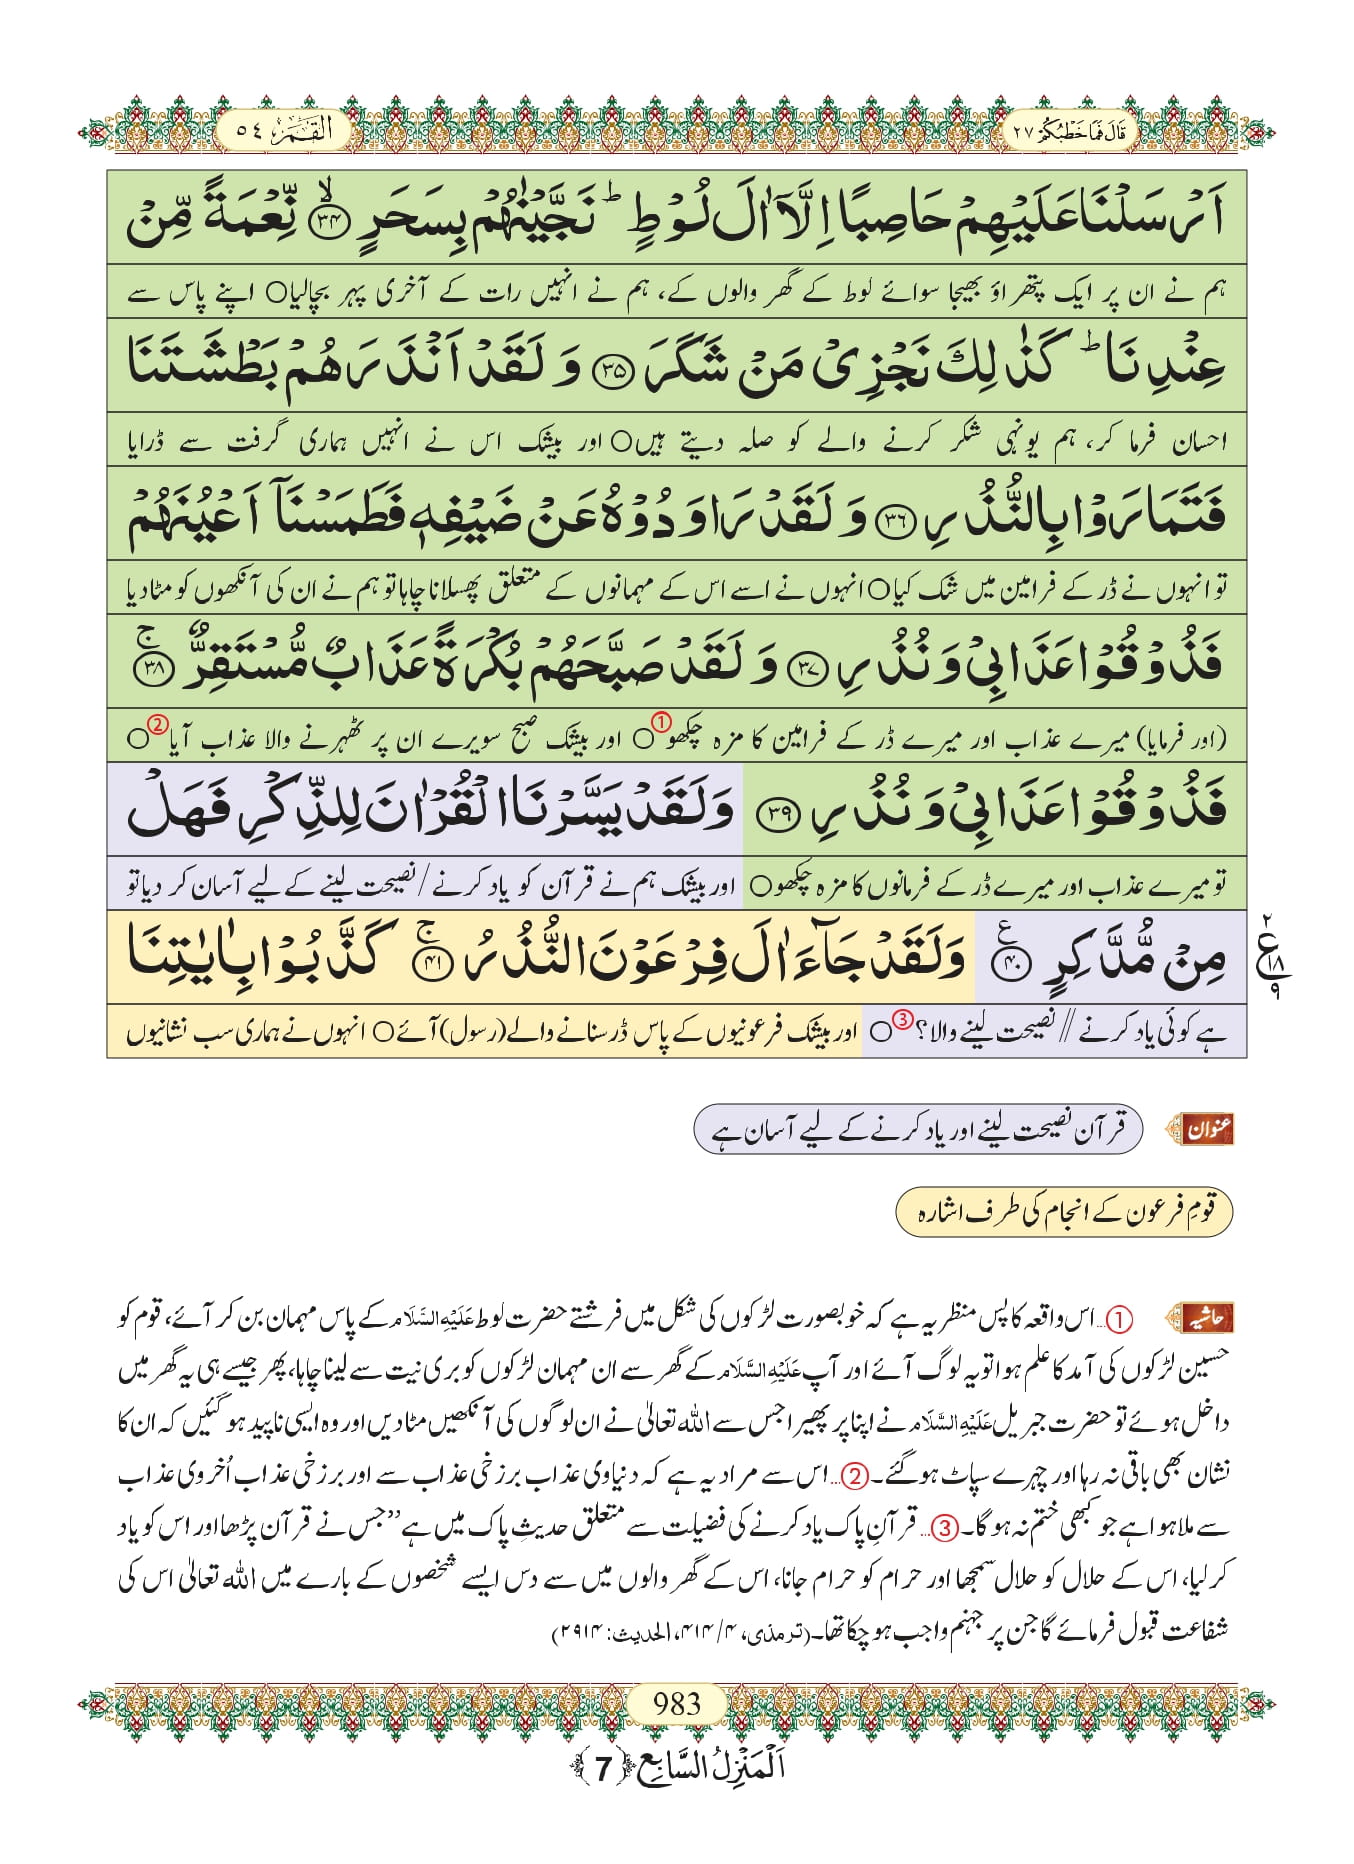 قَالَ فَمَا خَطْبُكُمْ ٢٧
الْقَمَر ٥٤
اَرْسَلْنَا عَلَيْهِمْ حَاصِبًا اِلَّاۤ اٰلَ لُوْطٍ ؕ نَجَّيْنٰهُمْ بِسَحَرٍ ﴿۳۴﴾ۙ نِّعْمَةً مِّنْ
ہم نے ان پر ایک پتھراؤ بھیجا سوائے لوط کے گھر والوں کے، ہم نے انہیں رات کے آخری پہر بچالیا○ اپنے پاس سے
عِنْدِنَا ؕ كَذٰلِكَ نَجْزِىْ مَنْ شَكَرَ ﴿۳۵﴾ وَ لَقَدْ اَنْذَرَهُمْ بَطْشَتَنَا
احسان فرما کر، ہم یونہی شکر کرنے والے کو صلہ دیتے ہیں○ اور بیشک اس نے انہیں ہماری گرفت سے ڈرایا
فَتَمَارَوْا بِالنُّذُرِ ﴿۳۶﴾ وَ لَقَدْ رَاوَدُوْهُ عَنْ ضَيْفِهٖ فَطَمَسْنَاۤ اَعْيُنَهُمْ
تو انہوں نے ڈر کے فرامین میں شک کیا○ انہوں نے اسے اس کے مہمانوں کے متعلق پھسلانا چاہا تو ہم نے ان کی آنکھوں کو مٹادیا
فَذُوْقُوْا عَذَابِىْ وَ نُذُرِ ﴿۳۷﴾ وَ لَقَدْ صَبَّحَهُمْ بُكْرَةً عَذَابٌ مُّسْتَقِرٌّ ﴿۳۸﴾ۚ
(اور فرمایا) میرے عذاب اور میرے ڈر کے فرامین کا مزہ چکھو① ○ اور بیشک صبح سویرے ان پر ٹھہرنے والا عذاب آیا② ○
فَذُوْقُوْا عَذَابِىْ وَ نُذُرِ ﴿۳۹﴾ وَلَقَدْ يَسَّرْنَا الْقُرْاٰنَ لِلذِّكْرِ فَهَلْ
تو میرے عذاب اور میرے ڈر کے فرمانوں کا مزہ چکھو○ اور بیشک ہم نے قرآن کو یاد کرنے/نصیحت لینے کے لیے آسان کر دیا تو
مِنْ مُّدَّكِرٍ ﴿۴۰﴾ ع وَلَقَدْ جَآءَ اٰلَ فِرْعَوْنَ النُّذُرُ ﴿۴۱﴾ۚ كَذَّبُوْا بِاٰيٰتِنَا
٢ ع ١٨ ٩
ہے کوئی یاد کرنے // نصیحت لینے والا؟③ ○ اور بیشک فرعونیوں کے پاس ڈر سنانے والے (رسول) آئے○ انہوں نے ہماری سب نشانیوں
عنوان قرآن نصیحت لینے اور یاد کرنے کے لیے آسان ہے
قومِ فرعون کے انجام کی طرف اشارہ
حاشیہ ①... اس واقعہ کا پس منظر یہ ہے کہ خوبصورت لڑکوں کی شکل میں فرشتے حضرت لوط عَلَيْهِ السَّلَام کے پاس مہمان بن کر آئے، قوم کو
حسین لڑکوں کی آمد کا علم ہوا تو یہ لوگ آئے اور آپ عَلَيْهِ السَّلَام کے گھر سے ان مہمان لڑکوں کو بری نیت سے لینا چاہا، پھر جیسے ہی یہ گھر میں
داخل ہوئے تو حضرت جبریل عَلَيْهِ السَّلَام نے اپنا پر پھیرا جس سے اللہ تعالیٰ نے ان لوگوں کی آنکھیں مٹادیں اور وہ ایسی ناپید ہوگئیں کہ ان کا
نشان بھی باقی نہ رہا اور چہرے سپاٹ ہوگئے۔②... اس سے مراد یہ ہے کہ دنیاوی عذاب برزخی عذاب سے اور برزخی عذاب اُخروی عذاب
سے ملا ہوا ہے جو کبھی ختم نہ ہو گا۔③... قرآنِ پاک یاد کرنے کی فضیلت سے متعلق حدیثِ پاک میں ہے ”جس نے قرآن پڑھا اور اس کو یاد
کر لیا، اس کے حلال کو حلال سمجھا اور حرام کو حرام جانا، اس کے گھر والوں میں سے دس ایسے شخصوں کے بارے میں اللہ تعالیٰ اس کی
شفاعت قبول فرمائے گا جن پر جہنم واجب ہو چکا تھا۔(ترمذی، ۴/۴۱۴، الحدیث: ۲۹۱۴)
983
اَلْمَنْزِلُ السَّابِع ﴿7﴾